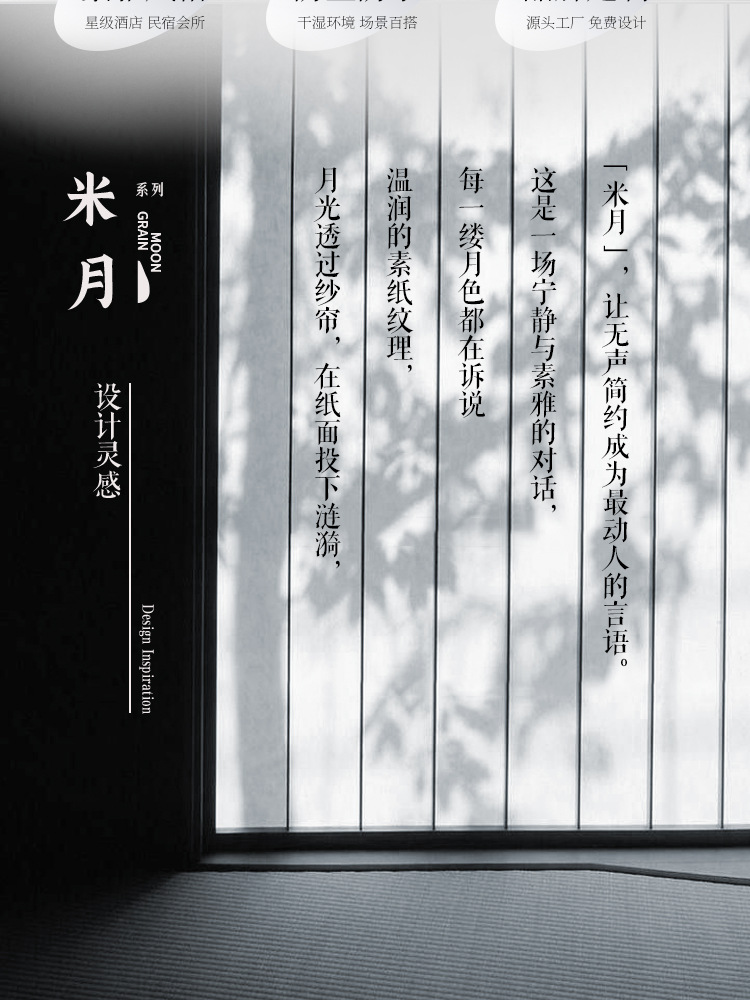 星级酒店 民宿会所
干湿环境 场景百搭
源头工厂 免费设计
米月
系列
MOON
GRAIN
设计灵感
Design Inspiration
月光透过纱帘，在纸面投下涟漪，
温润的素纸纹理，
每一缕月色都在诉说
这是一场宁静与素雅的对话，
「米月」，让无声简约成为最动人的言语。